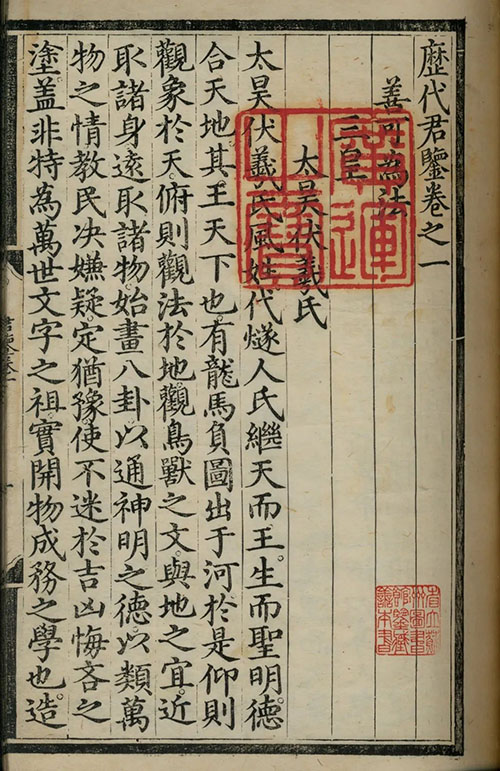 歷代君鑒卷之一
善可為法
三皇
太昊伏羲氏
太昊伏羲氏風姓代燧人氏繼天而王。生而聖明。德
合天地。其王天下也。有龍馬負圖出于河。於是仰則
觀象於天。俯則觀法於地。觀鳥獸之文。與地之宜。近
取諸身。遠取諸物。始畫八卦。以通神明之德。以類萬
物之情。教民决嫌疑。定猶豫。使不迷於吉凶悔吝之
塗。盖非特為萬世文字之祖。實開物成務之學也。造
廣運之寶